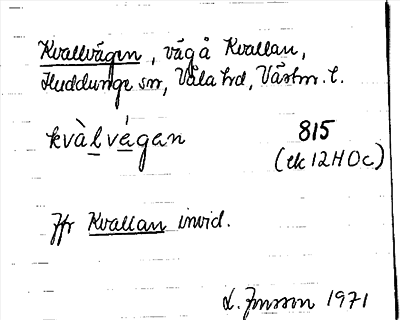 Kvallvägen, väg å Kvallan,
Huddunge sn, Våla hd, Västm. l.
kvàlvágan 815
(ek 12H0c)
Jfr Kvallan invid.
L. Jonsson 1971